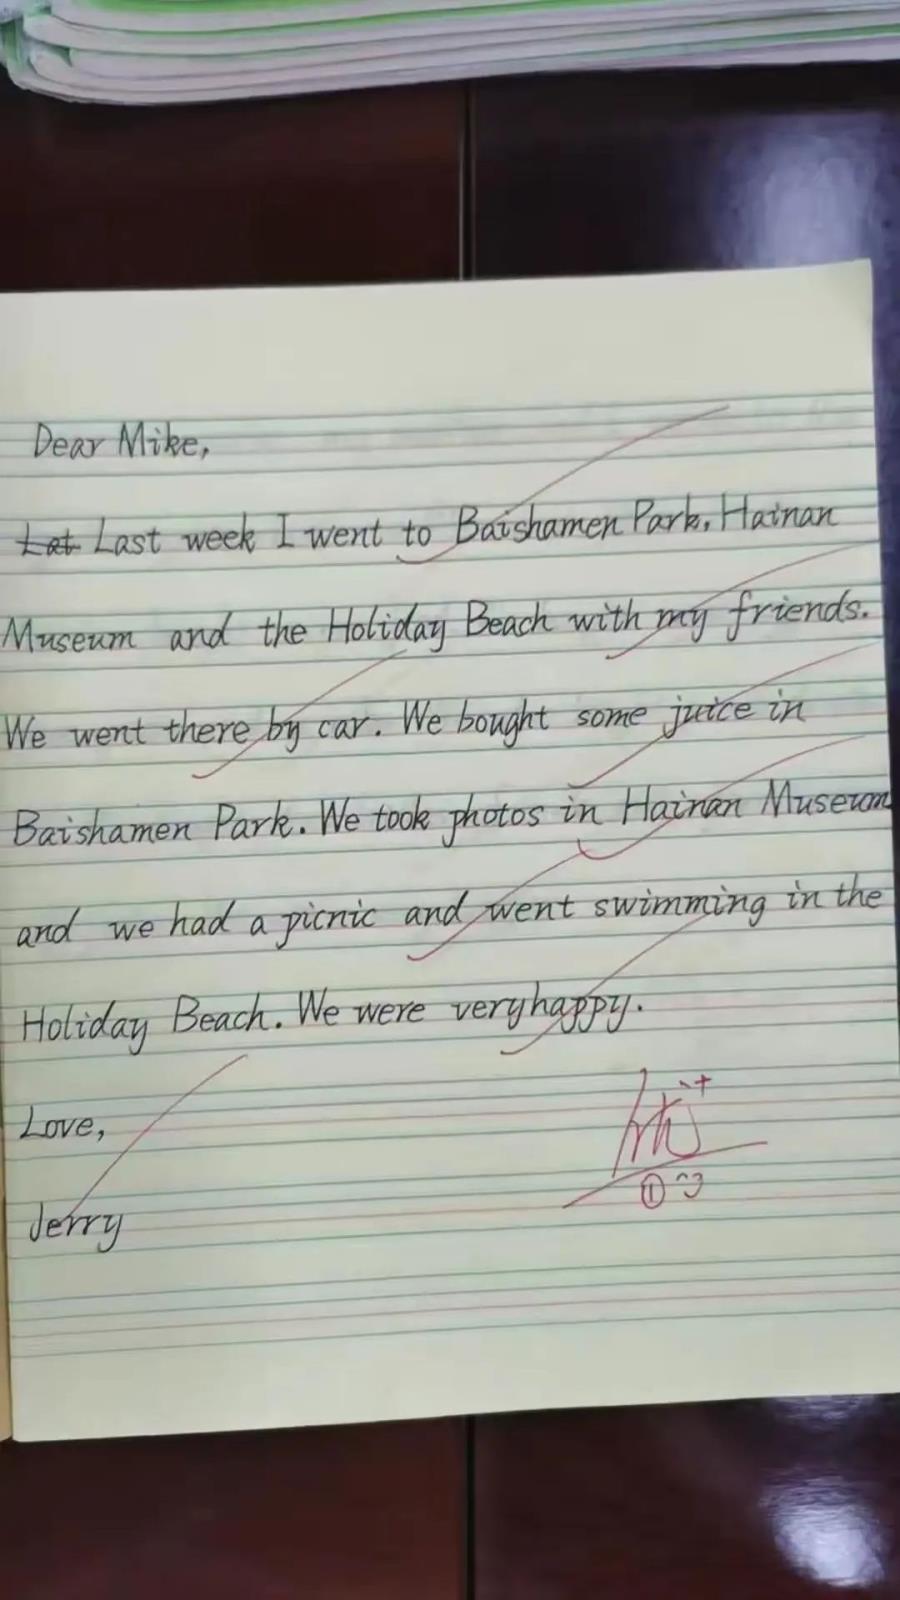 Dear Mike,
Lat Last week I went to Baishamen Park, Hainan
Museum and the Holiday Beach with my friends.
We went there by car. We bought some juice in
Baishamen Park. We took photos in Hainan Museum
and we had a picnic and went swimming in the
Holiday Beach. We were very happy.
Love,
Jerry
①